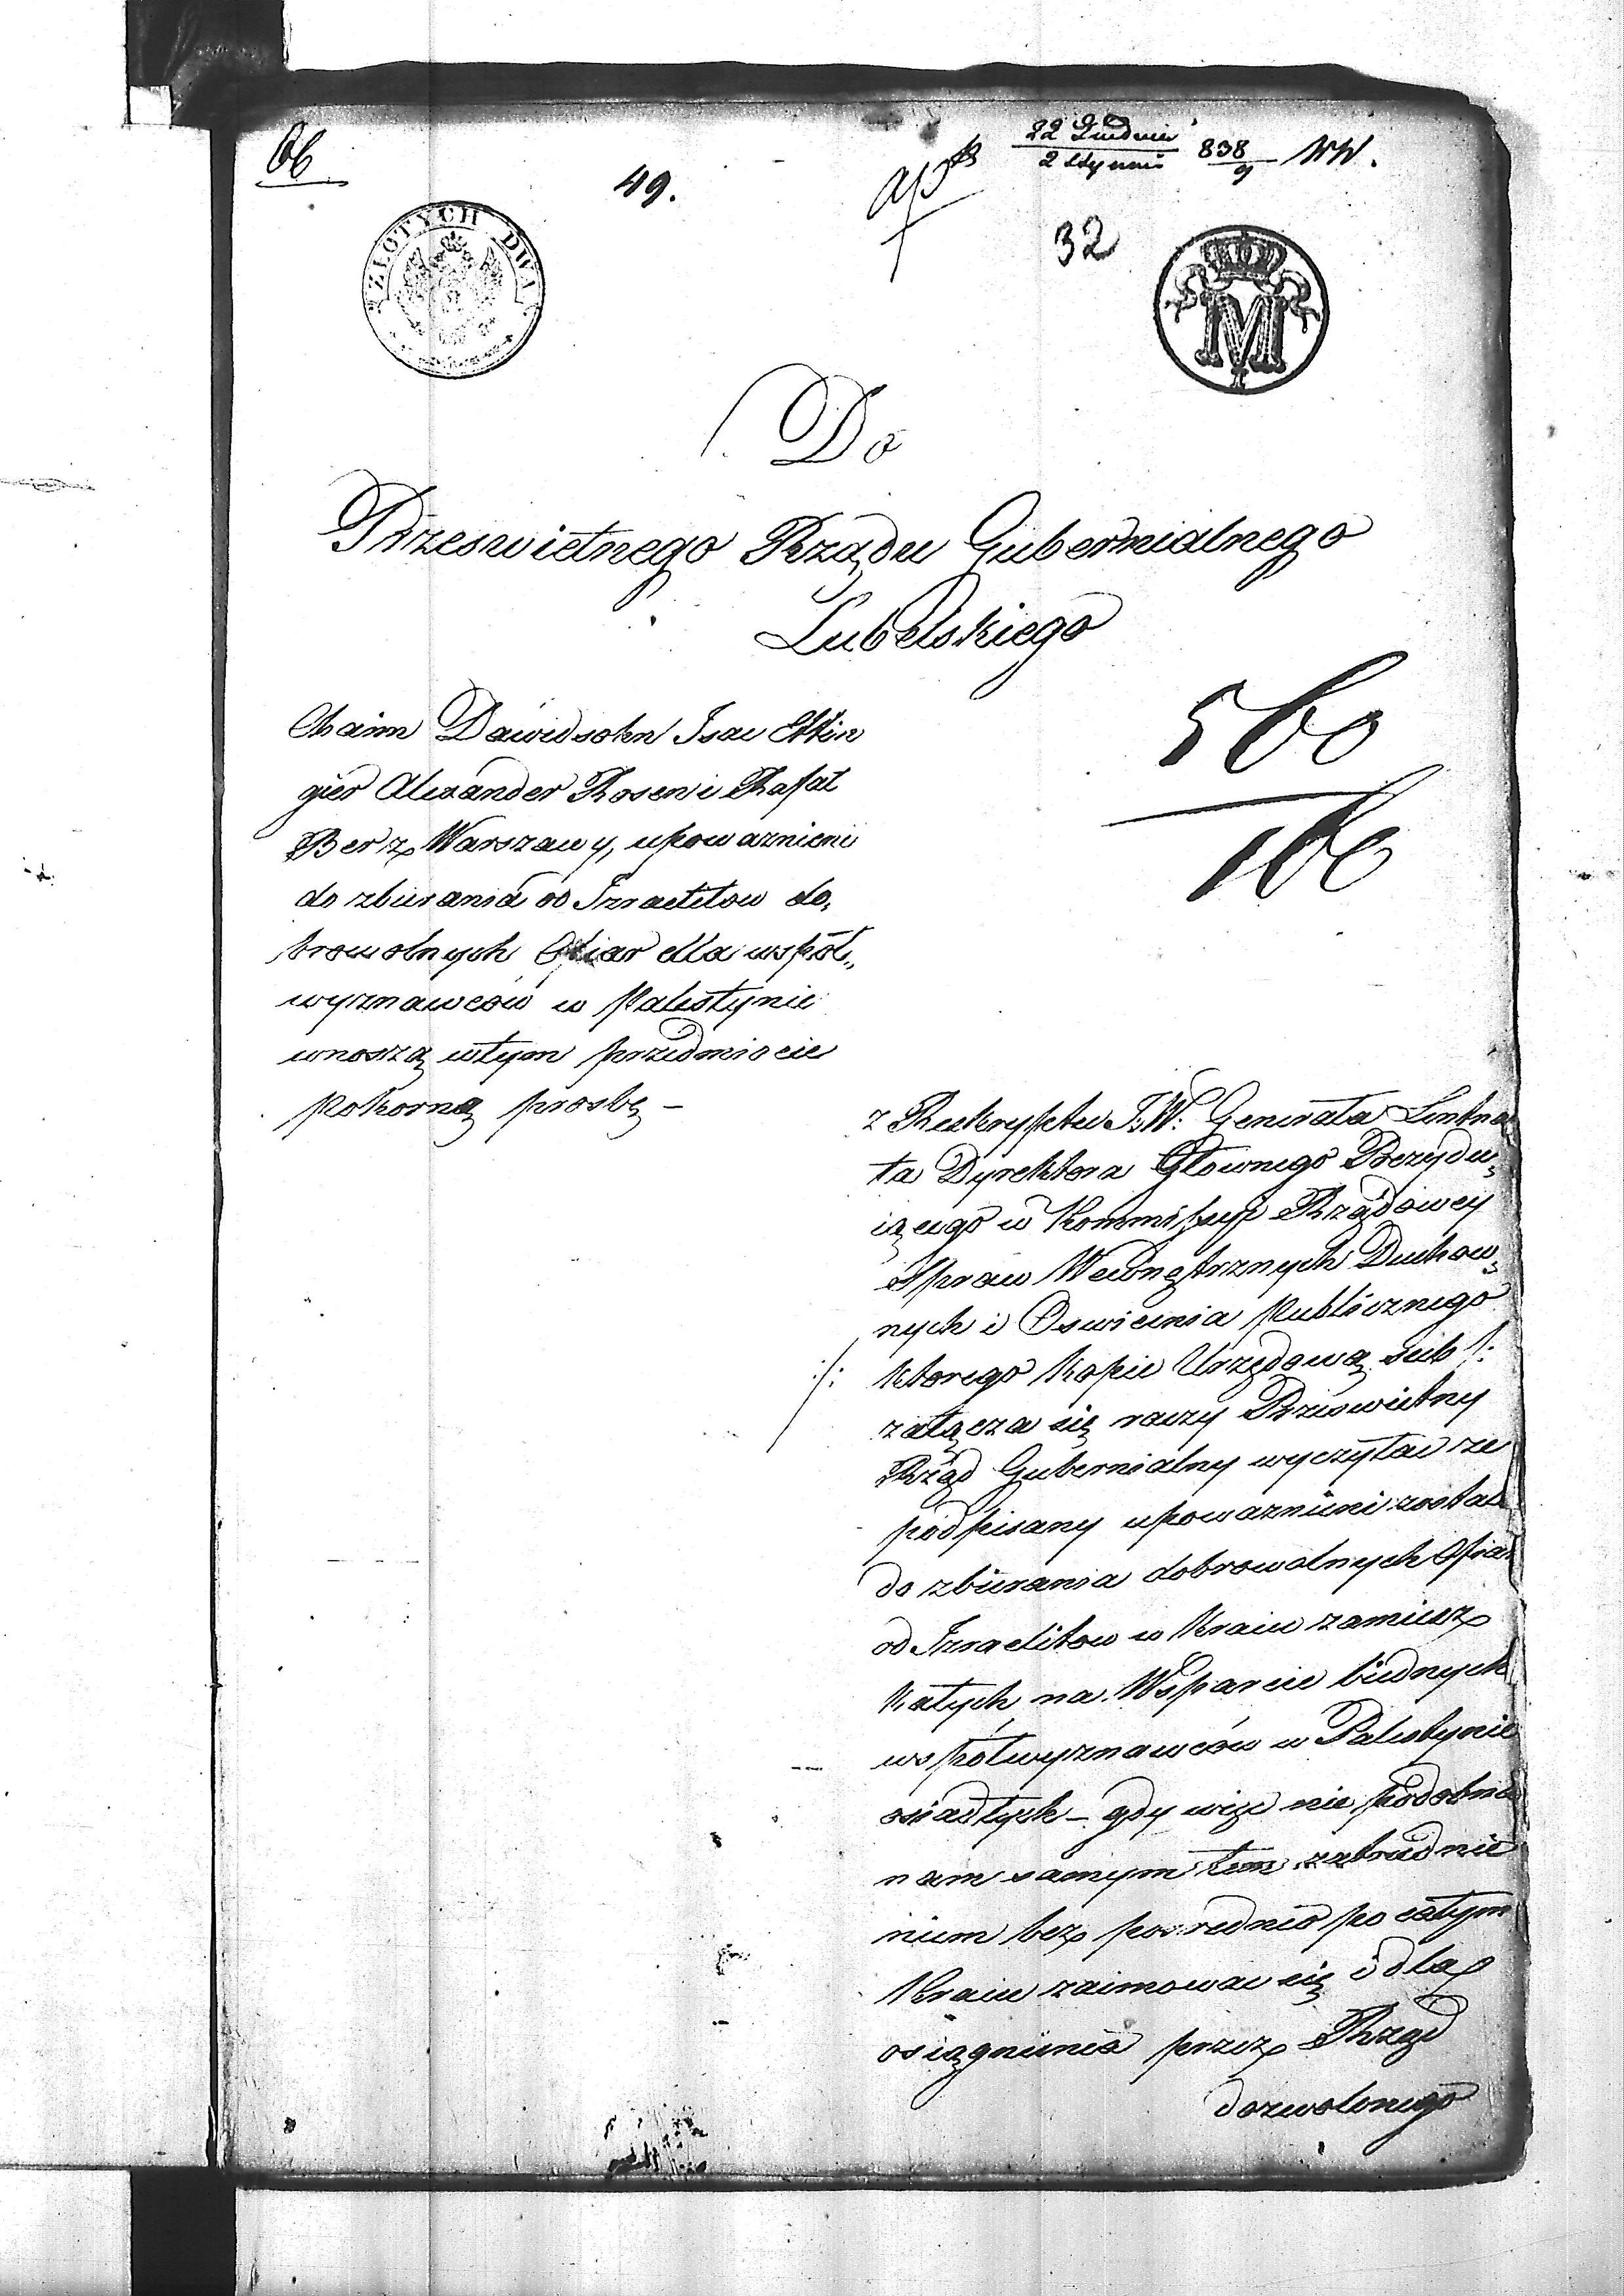 66
49.
22 Grudnia
2 Stycznia 838/9 WW.
32
ZŁOTYCH DWA
M
Do
Prześwietnego Rządu Gubernialnego
Lubelskiego
560
166
Chaim Dawidsohn Isac Ettin
gier Alexander Rosen i Rafał
Ber z Warszawy, upowaznieni
do zbierania od Izraelitow do,
browolnych Ofiar dla współ„
wyznawców w Palestynie
wnoszą wtym przedmiocie
pokorną prosbę –
z Reskryptu J.W. Generała Leutna
ta Dyrektora Głownego Prezydu,
iącego w Kommissyi Rządowey
Spraw Wewnętrznych Duchow,
nych i Oswiecenia Publicznego
:/: ktorego kopie Urzędową sub /:
załącza się raczy Prześwietny
Rząd Gubernialny wyczytac ze
podpisany upowaznieni zostali
do zbierania dobrowolnych Ofiar
od Izraelitow w Kraiu zamiesz
kałych na Wsparcie biednych
współwyznawców w Palestynie
osiadłych – gdy więc nie podobna
nam samym tem zatrudnie
niem bez posrednio po całym
Kraiu zaimowac się i dla
osiągnienia przez Rząd
dozwolonego